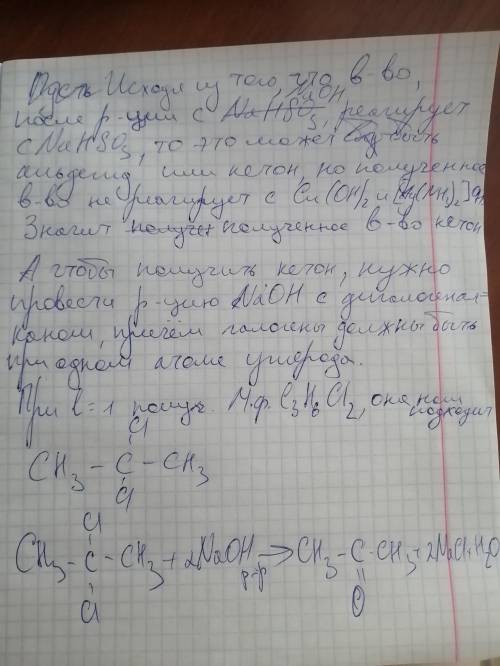 Пусть Исходя из того, что в-во,
NaOH
после р-ции с NaHSO3, реагирует
с NaHSO3, то это может быть
альдегид или кетон, но полученное
в-во не реагирует с Cu(OH)2 и
Значит получ полученное в-во кетон
А чтобы получить кетон, нужно
провести р-цию NaOH с дигалогенал-
каном, причём галогены должны быть
при одном атоме углерода.
При l=1 получ. М.ф. C3H6Cl2, она нам
подходит
Cl
CH3 - C - CH3
Cl
Cl
CH3 - C - CH3 + 2NaOH → CH3 - C - CH3 + 2NaCl + H2O
р-р
Cl
O